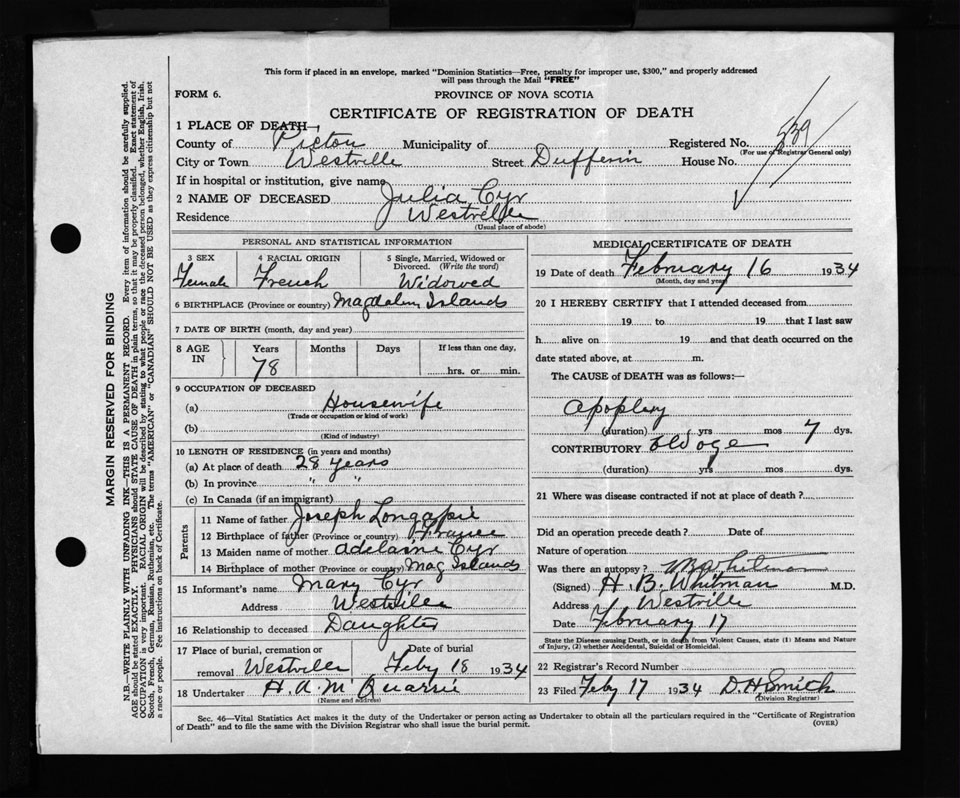 This form if placed in an envelope, marked "Dominion Statistics—Free, penalty for improper use, $300," and properly addressed
will pass through the Mail "FREE"
FORM 6.
PROVINCE OF NOVA SCOTIA
CERTIFICATE OF REGISTRATION OF DEATH
1 PLACE OF DEATH—
County of Pictou Municipality of Registered No. 539
(For use of Registrar General only)
City or Town Westville Street Dufferin House No.
If in hospital or institution, give name
2 NAME OF DECEASED Julia Cyr
Residence Westville
(Usual place of abode)
PERSONAL AND STATISTICAL INFORMATION
3 SEX 4 RACIAL ORIGIN 5 Single, Married, Widowed or
Divorced. (Write the word)
Female French Widowed
6 BIRTHPLACE (Province or country) Magdalen Islands
7 DATE OF BIRTH (month, day and year)
8 AGE IN Years Months Days If less than one day,
78 hrs. or min.
9 OCCUPATION OF DECEASED
(a) Housewife
(Trade or occupation or kind of work)
(b)
(Kind of industry)
10 LENGTH OF RESIDENCE (in years and months)
(a) At place of death 28 years
(b) In province " "
(c) In Canada (if an immigrant)
Parents
11 Name of father Joseph Longapie
12 Birthplace of father (Province or country) France
13 Maiden name of mother Cyr
14 Birthplace of mother (Province or country) Mag Islands
15 Informant's name Mary Cyr
Address Westville
16 Relationship to deceased Daughter
17 Place of burial, cremation or Date of burial
removal Westville Feby 18 1934
18 Undertaker H. A. McQuarrie
(Name and address)
MEDICAL CERTIFICATE OF DEATH
19 Date of death February 16 1934
(Month, day and year)
20 I HEREBY CERTIFY that I attended deceased from
19 to 19 that I last saw
h alive on 19 and that death occurred on the
date stated above, at m.
The CAUSE of DEATH was as follows:—
Apoplexy
(duration) yrs mos 7 dys.
CONTRIBUTORY Old age
(duration) yrs mos dys.
21 Where was disease contracted if not at place of death?
Did an operation precede death? Date of
Nature of operation
Was there an autopsy?
(Signed) H. B. Whitman M.D.
Address Westville
Date February 17
State the Disease causing Death, or in death from Violent Causes, state (1) Means and Nature
of Injury, (2) whether Accidental, Suicidal or Homicidal.
22 Registrar's Record Number
23 Filed Feby 17 1934 D.H. Smith
(Division Registrar)
Sec. 46—Vital Statistics Act makes it the duty of the Undertaker or person acting as Undertaker to obtain all the particulars required in the "Certificate of Registration
of Death" and to file the same with the Division Registrar who shall issue the burial permit.
(OVER)
MARGIN RESERVED FOR BINDING
N.B.—WRITE PLAINLY WITH UNFADING INK—THIS IS A PERMANENT RECORD. Every item of information should be carefully supplied.
AGE should be stated EXACTLY. PHYSICIANS should STATE CAUSE OF DEATH in plain terms, so that it may be properly classified. Exact statement of
OCCUPATION is very important. RACIAL ORIGIN will be described by stating to what people or race the deceased person belonged, whether English, Irish,
Scotch, French, German, Russian, Ruthenian, etc. The terms "AMERICAN" or "CANADIAN" SHOULD NOT BE USED as they express citizenship but not
a race or people. See instructions on back of Certificate.